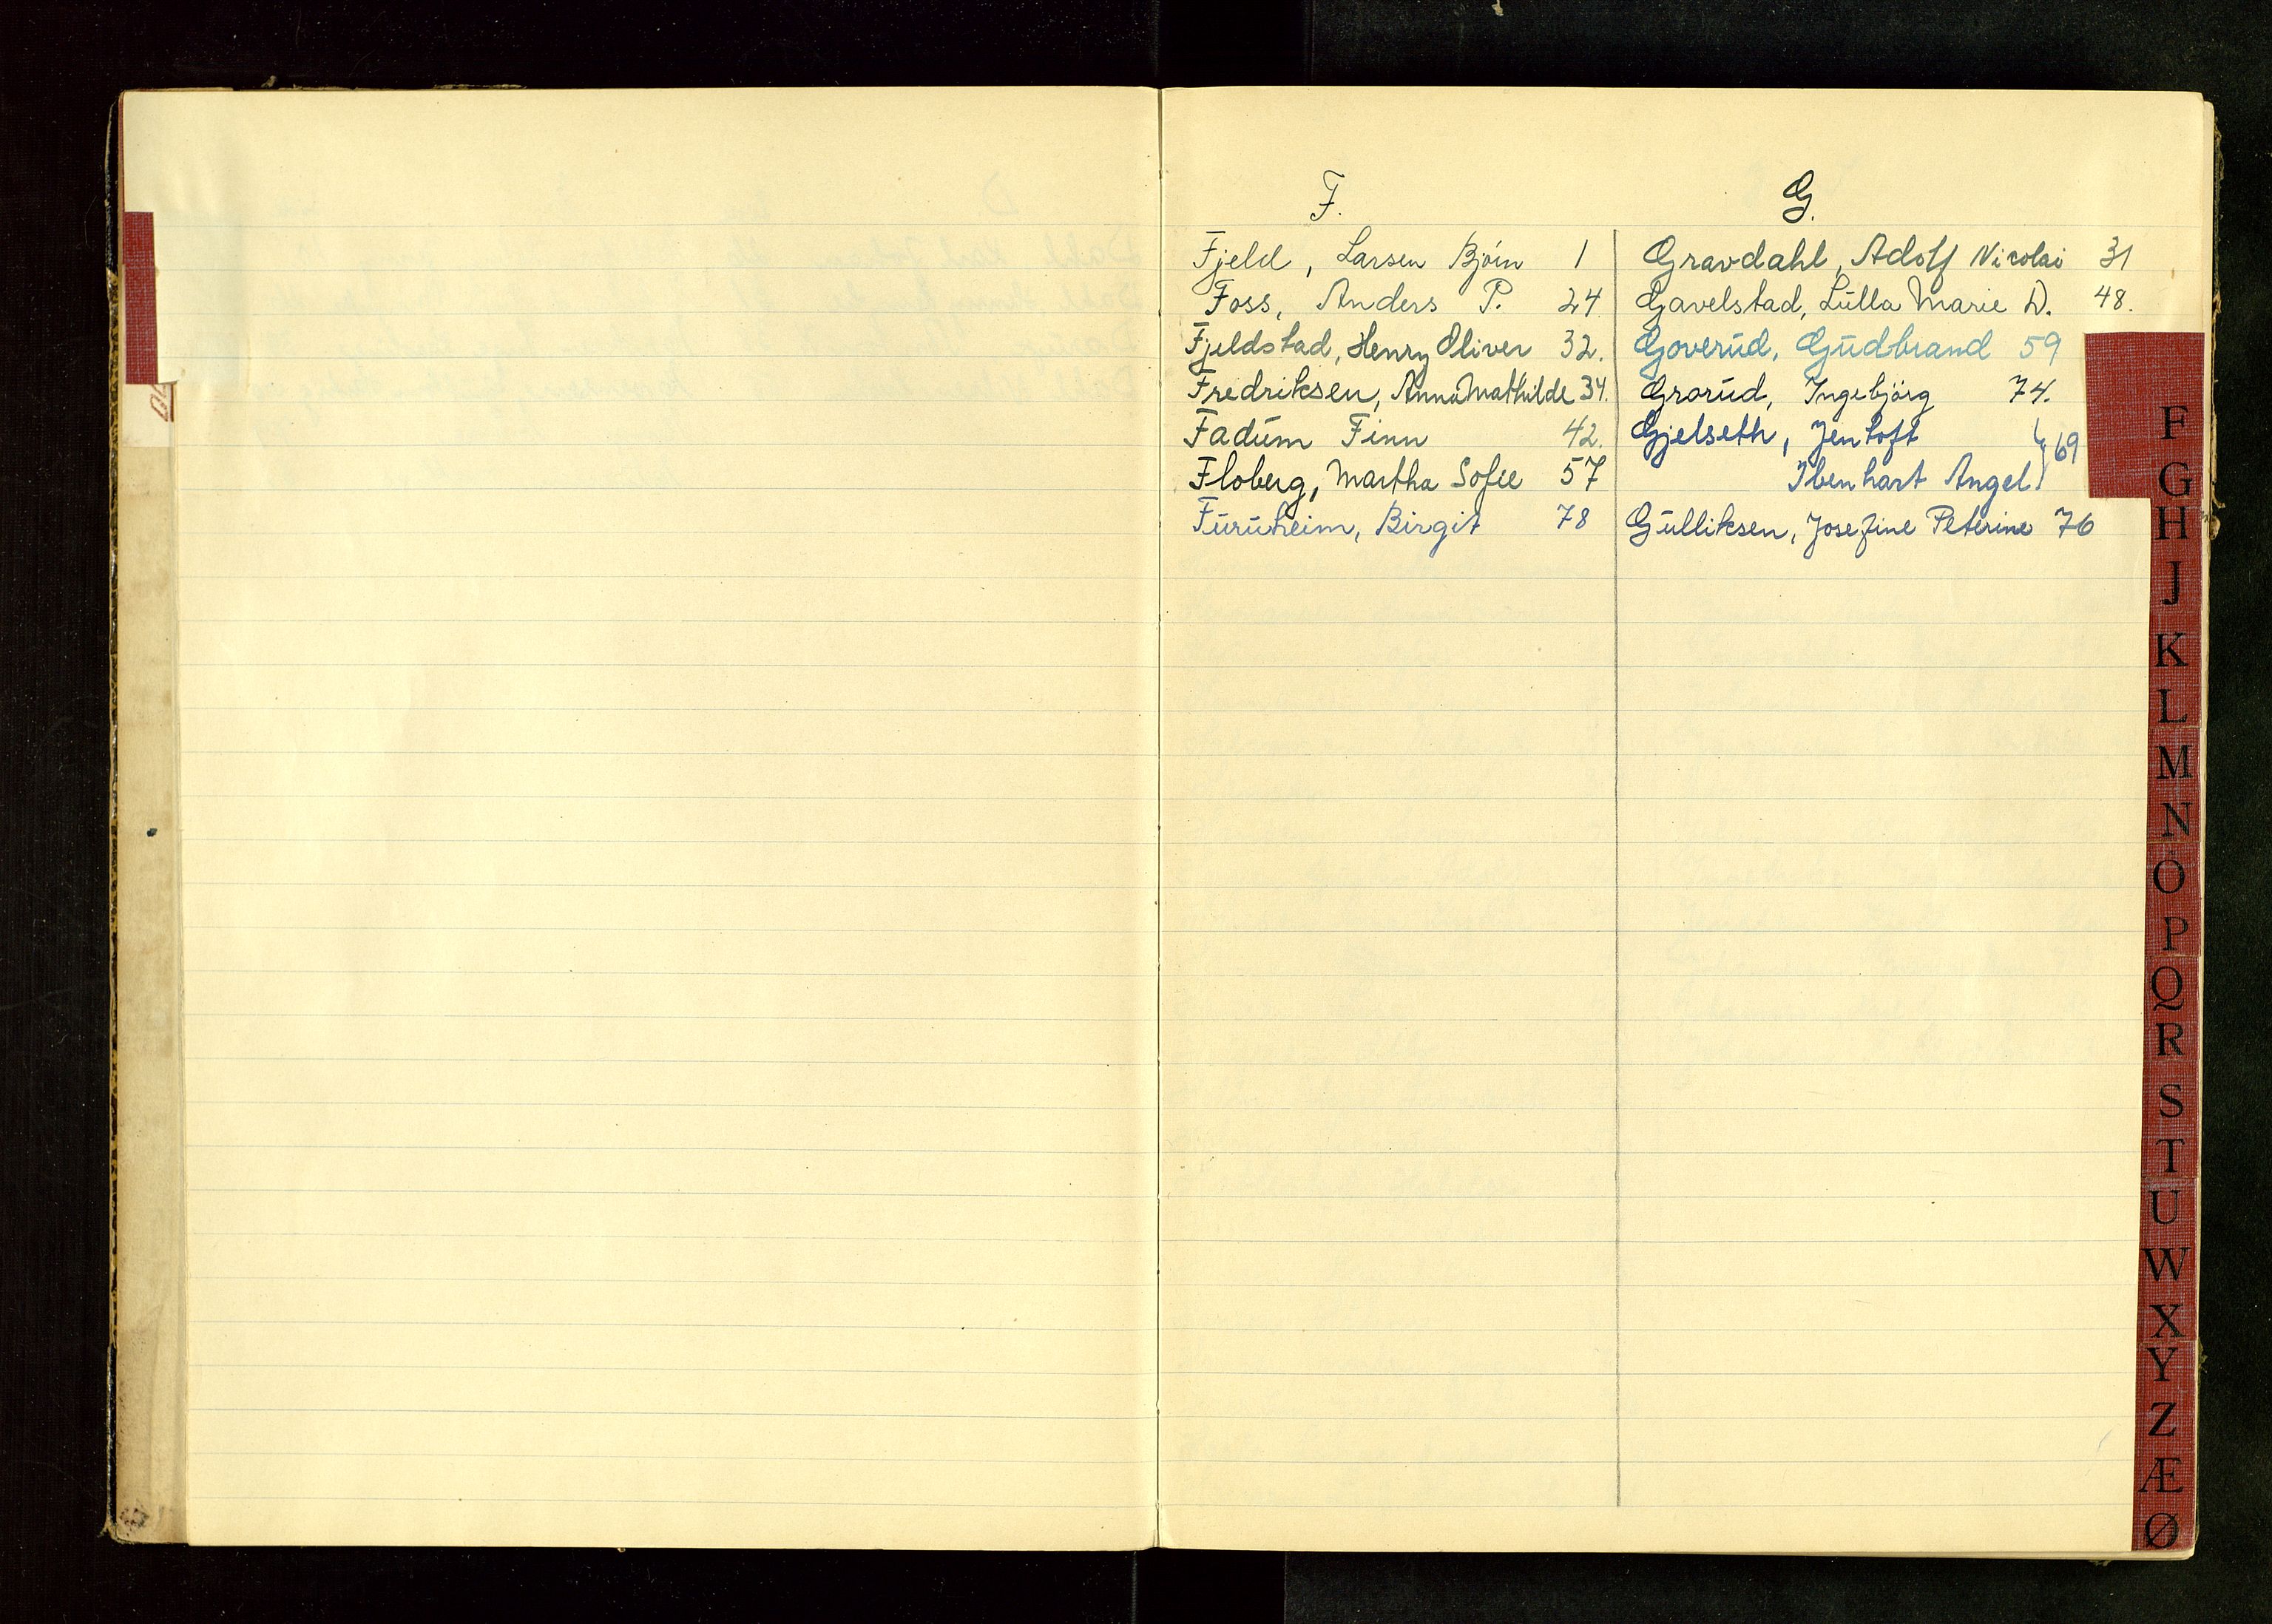 F.
Fjeld, Larsen Bjórn 1
Foss, Anders P. 24
Fjeldstad, Henry Oliver 32.
Fredriksen, Anna Mathilde 34.
Fadum Finn 42.
Floberg, Martha Sofie 57
Furuheim, Birgit 78
G.
Gravdahl, Adolf Nicolai 31
Gavelstad, Lulla Marie D. 48.
Goverud, Gudbrand 59
Grorud, Ingebjörg 74.
Gjelseth, Jentoft
Ibenhart Angel } 69
Gulliksen, Josefine Peterine 76
F
G
H
J
K
L
M
N
O
P
Q
R
S
T
U
W
X
Y
Z
Æ
Ø